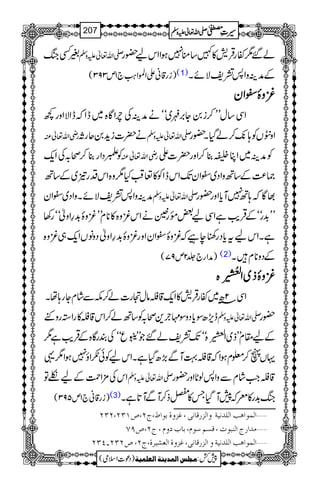 سیرتِ مصطفیٰ صلی اللہ تعالیٰ علیہ وسلم 207
لے گئے مگر کفار قریش کا کہیں سامنا نہیں ہوا اس لئے حضور صلی اللہ تعالیٰ علیہ وسلم بغیر کسی جنگ
کے مدینہ واپس تشریف لائے۔(1) (زرقانی علی المواہب ج۱ ص۳۹۳)
غزوۂ سفوان
اسی سال "کرز بن جابر فہری" نے مدینہ کی چراگاہ میں ڈاکہ ڈالا اور کچھ
اونٹوں کو ہانک کر لے گیا۔ حضور صلی اللہ تعالیٰ علیہ وسلم نے حضرت زید بن حارثہ رضی اللہ تعالیٰ عنہ
کو مدینہ میں اپنا خلیفہ بنا کر اور حضرت علی رضی اللہ تعالیٰ عنہ کو علمبردار بنا کر صحابہ کی ایک
جماعت کے ساتھ وادی سفوان تک اس ڈاکو کا تعاقب کیا مگر وہ اس قدر تیزی کے ساتھ
بھاگا کہ ہاتھ نہیں آیا اور حضور صلی اللہ تعالیٰ علیہ وسلم مدینہ واپس تشریف لائے۔ وادی سفوان
"بدر" کے قریب ہے اسی لیے بعض مؤرخین نے اس غزوہ کا نام "غزوۂ بدر اولیٰ" رکھا
ہے۔ اس لیے یہ یاد رکھنا چاہیے کہ غزوۂ سفوان اور غزوۂ بدر اولیٰ دونوں ایک ہی غزوہ
کے دو نام ہیں۔(2) (مدارج جلد۲ ص۷۹)
غزوۂ ذی العُشَیرہ
اسی ۲ھ میں کفار قریش کا ایک قافلہ مال تجارت لے کر مکہ سے شام جا رہا تھا۔
حضور صلی اللہ تعالیٰ علیہ وسلم ڈیڑھ سو یا دو سو مہاجرین صحابہ کو ساتھ لے کر اس قافلہ کا راستہ روکنے
کے لیے مقام "ذی العشیرہ" تک تشریف لے گئے جو "ینبوع" کی بندرگاہ کے قریب ہے مگر
یہاں پہنچ کر معلوم ہوا کہ قافلہ بہت آگے بڑھ گیا ہے۔ اس لیے کوئی ٹکراؤ نہیں ہوا مگر یہی
قافلہ جب شام سے واپس لوٹا اور حضور صلی اللہ تعالیٰ علیہ وسلم اس کی مزاحمت کے لیے نکلے تو
جنگ بدر کا معرکہ پیش آ گیا جس کا مفصل ذکر آگے آتا ہے۔(3) (زرقانی ج۱ ص۳۹۵)
المواهب اللدنية والزرقانی ، غزوة بواط،ج۲،ص۲۳۱،۲۳۲
مدارج النبوت ، قسم سوم، باب دوم ، ج۲،ص۷۹
المواهب اللدنية و الزرقانی ، غزوة العشيرة،ج۲،ص۲۳۲-۲۳۴
پیش کش: مجلس المدینة العلمیة (دعوتِ اسلامی)